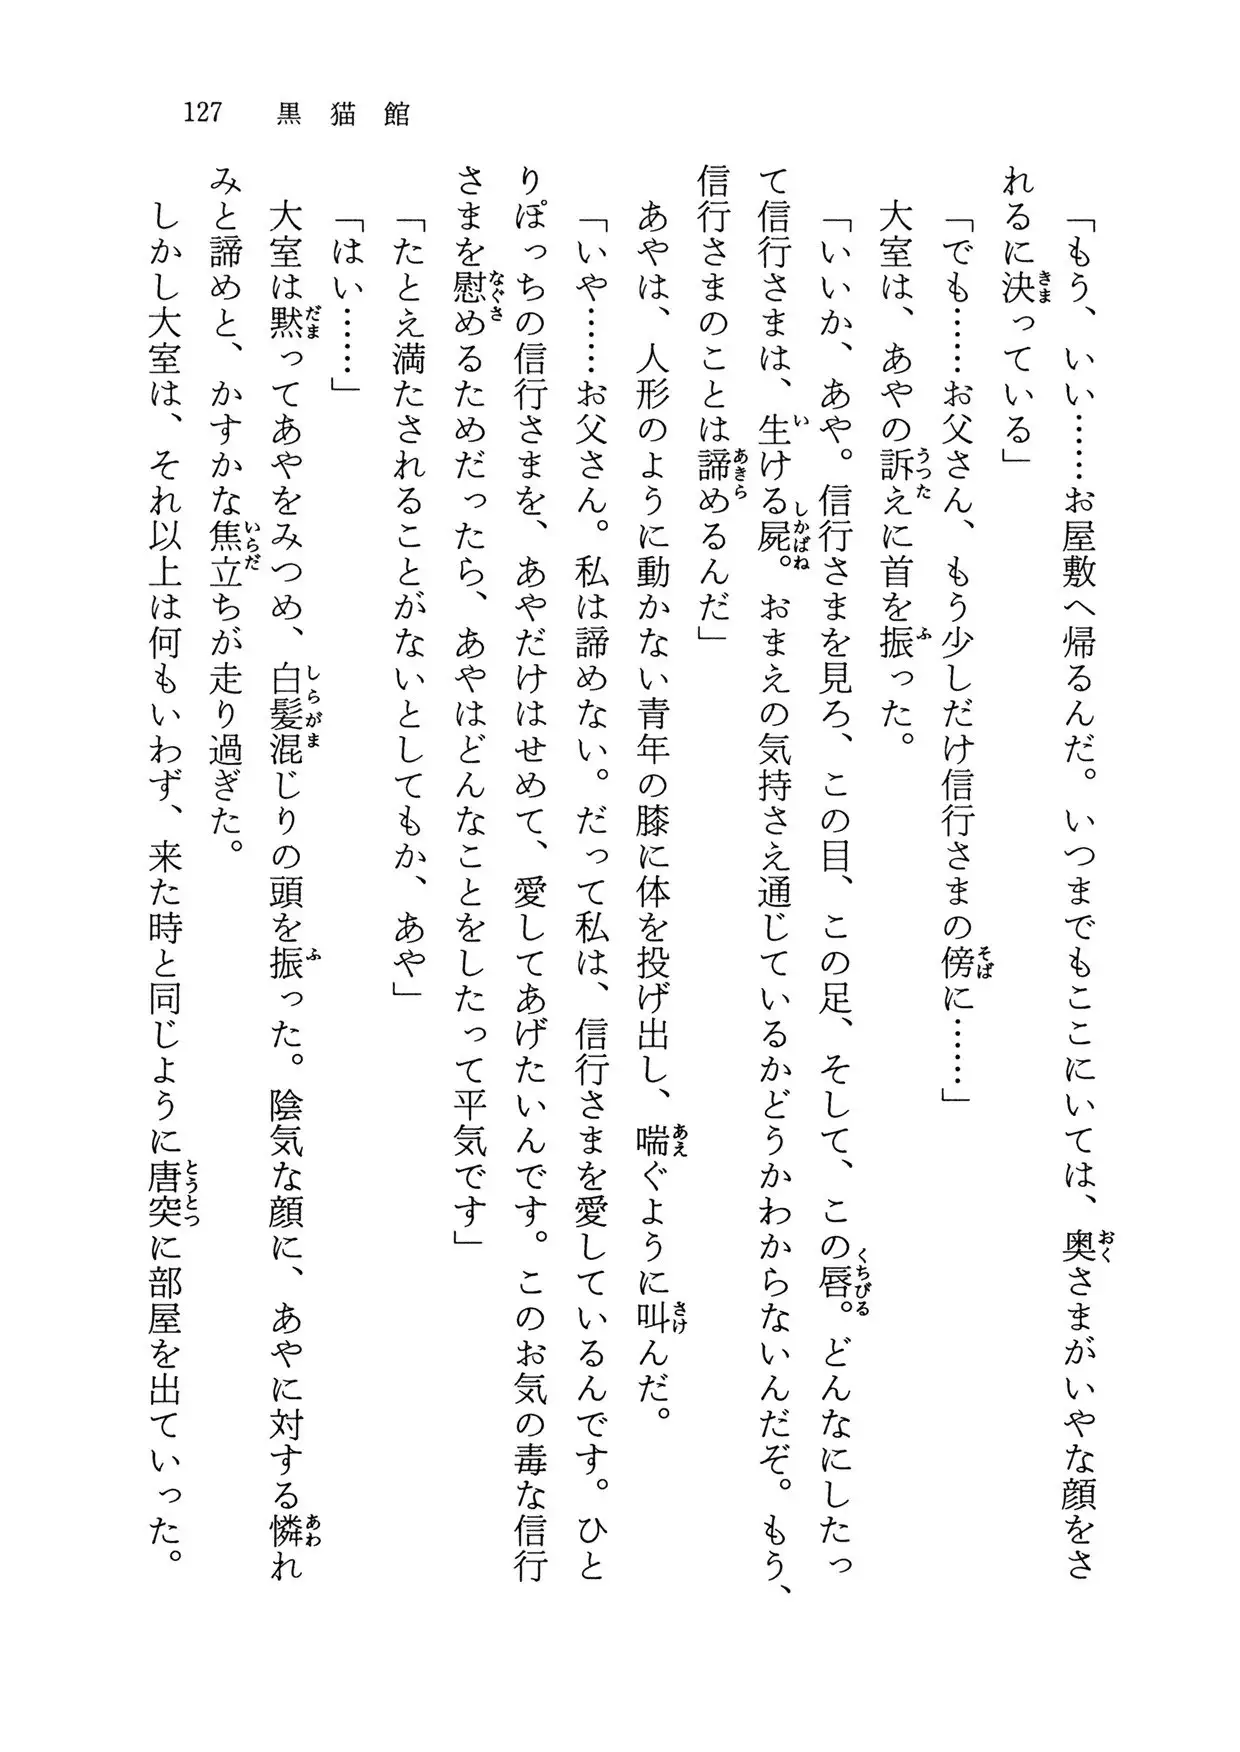 127 黒猫館
「もう、いい……お屋敷へ帰るんだ。いつまでもここにいては、奥さまがいやな顔をさ
れるに決っている」
「でも……お父さん、もう少しだけ信行さまの傍に……」
大室は、あやの訴えに首を振った。
「いいか、あや。信行さまを見ろ、この目、この足、そして、この唇。どんなにしたっ
て信行さまは、生ける屍。おまえの気持さえ通じているかどうかわからないんだぞ。もう、
信行さまのことは諦めるんだ」
あやは、人形のように動かない青年の膝に体を投げ出し、喘ぐように叫んだ。
「いや……お父さん。私は諦めない。だって私は、信行さまを愛しているんです。ひと
りぽっちの信行さまを、あやだけはせめて、愛してあげたいんです。このお気の毒な信行
さまを慰めるためだったら、あやはどんなことをしたって平気です」
「たとえ満たされることがないとしてもか、あや」
「はい……」
大室は黙ってあやをみつめ、白髪混じりの頭を振った。陰気な顔に、あやに対する憐れ
みと諦めと、かすかな焦立ちが走り過ぎた。
しかし大室は、それ以上は何もいわず、来た時と同じように唐突に部屋を出ていった。